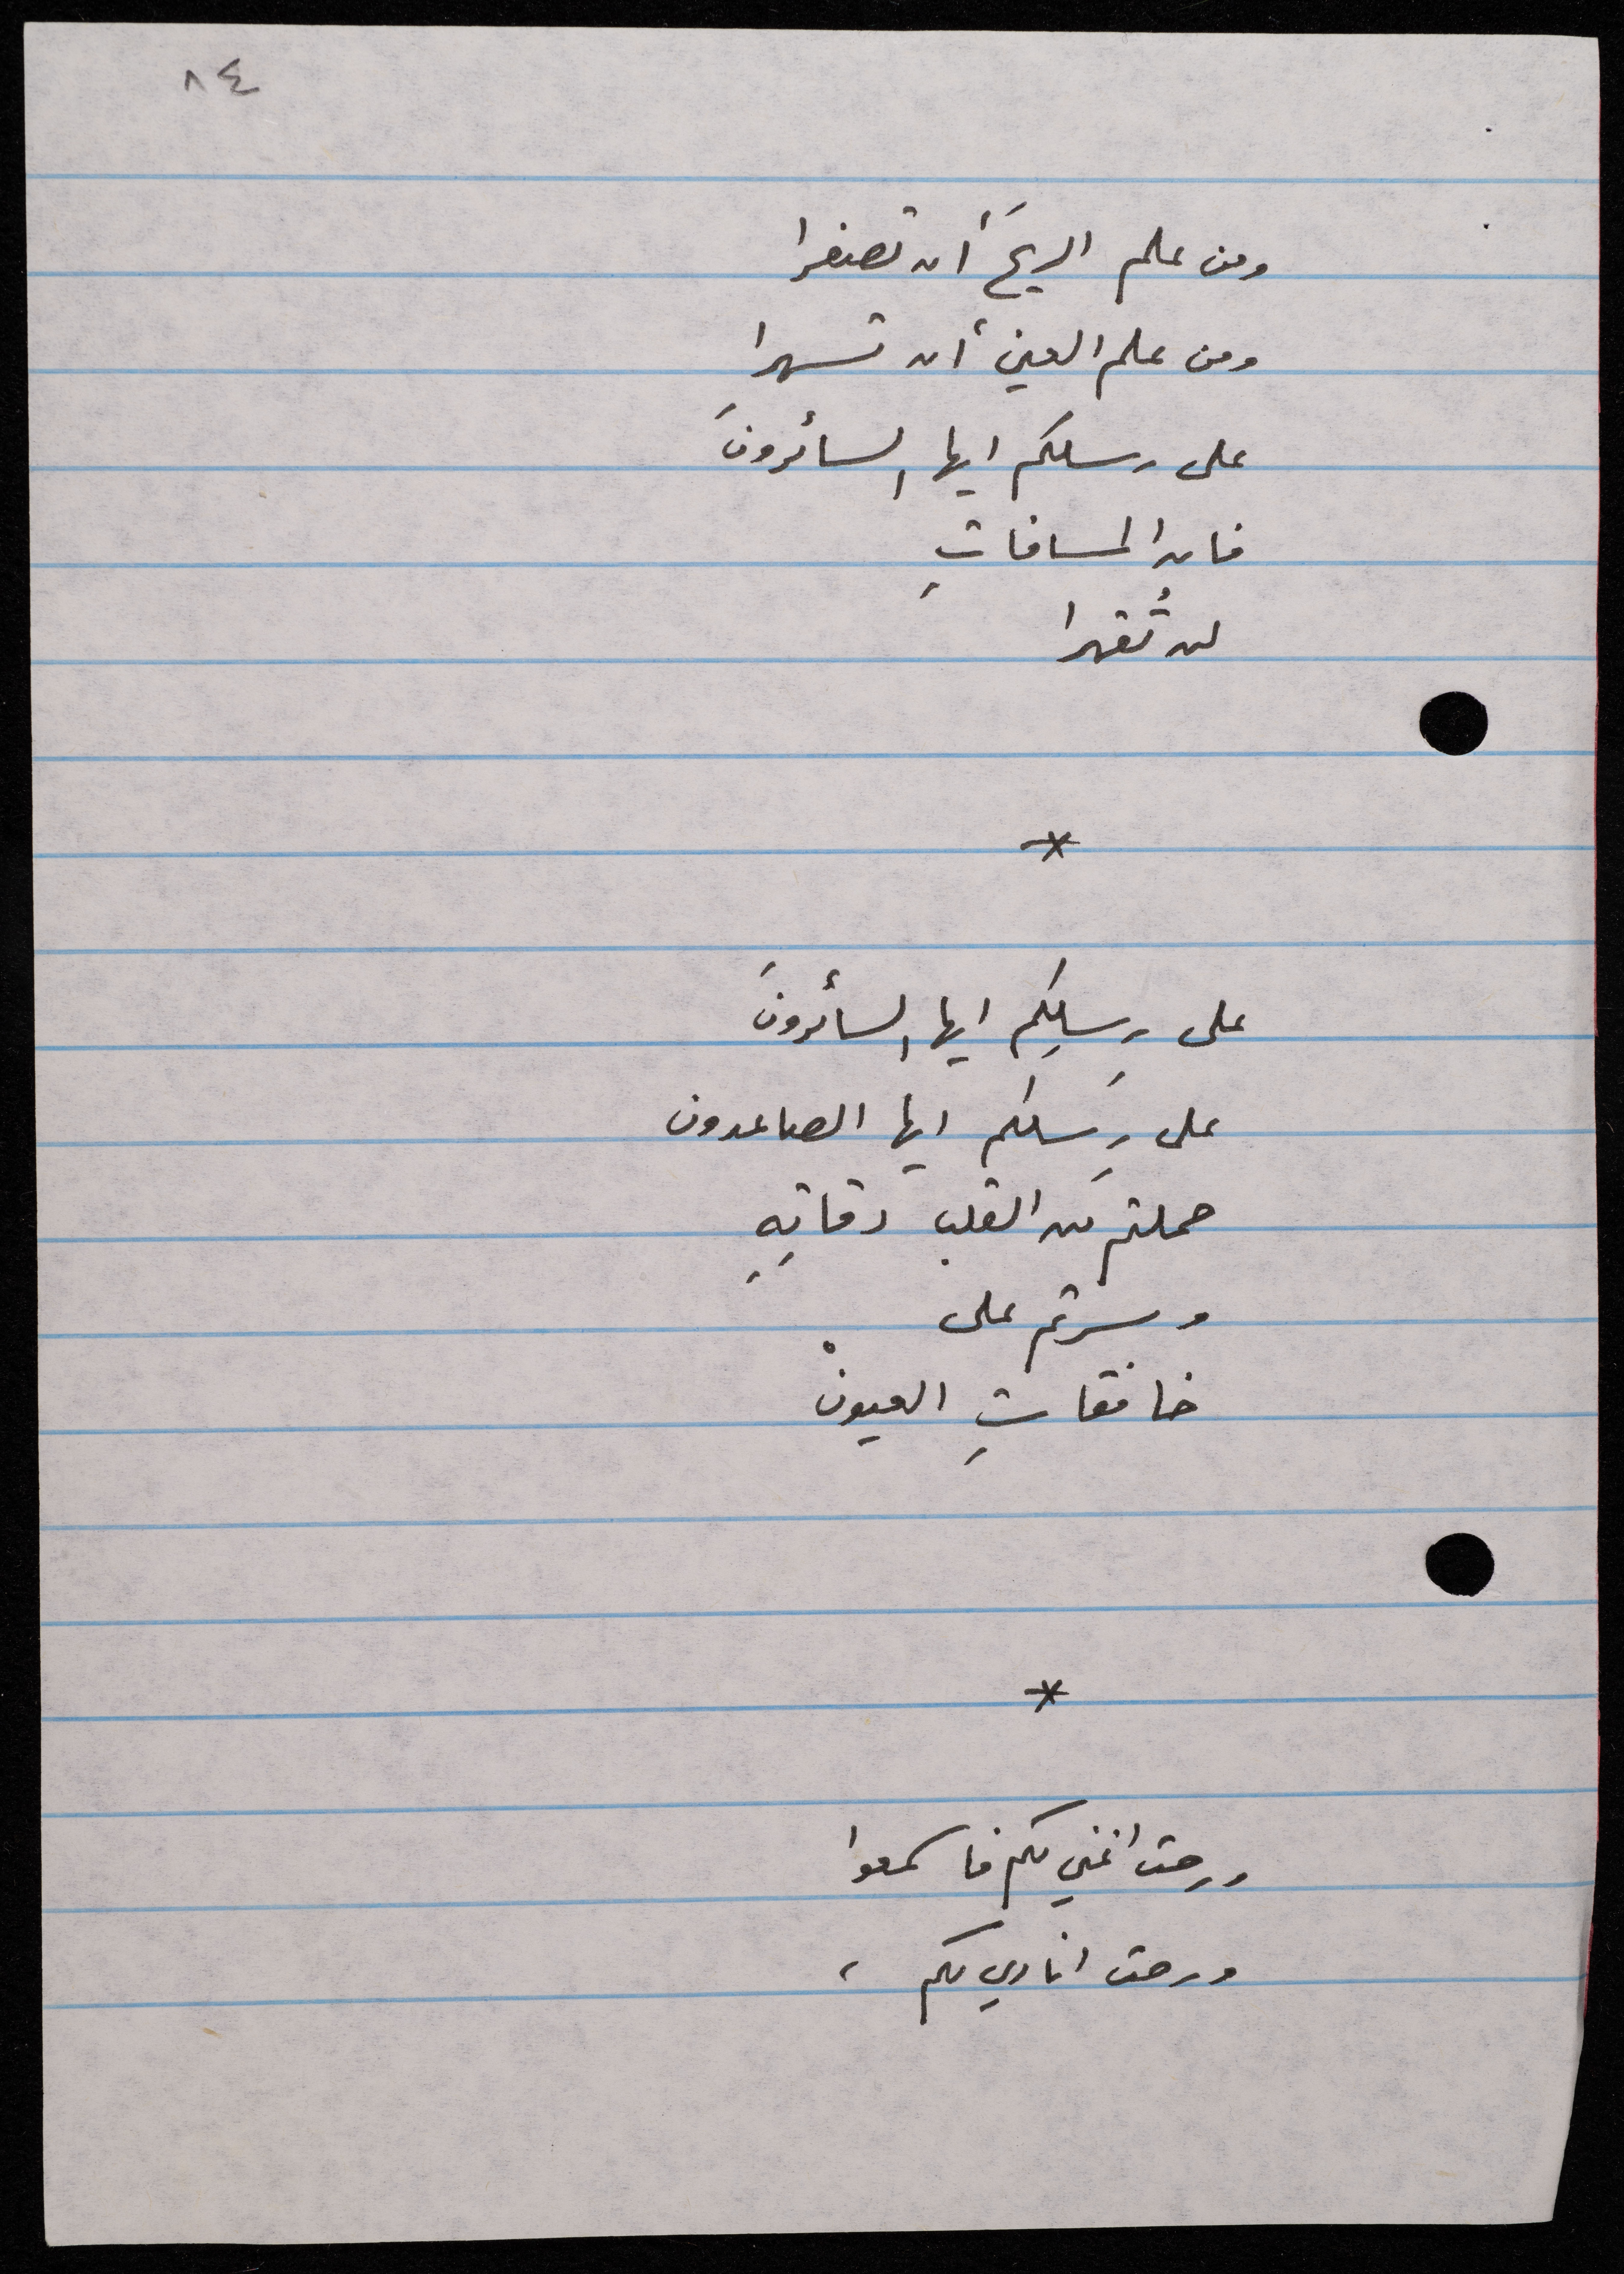 ٨٤
ومن علم الريحَ أن تصفرا
ومن علم العين أن تسهرا
على رسلكم ايها السائرونَ
فان المسافاتِ
لن تُقهرا
*
على رِسلِكم ايها السائرونَ
على رِسلكم ايها الصاعدون
حملتم من القلب دقاتِهِ
وسرتم على
خافقاتِ العيونْ
*
ورحت اغني لكم فاسمعوا
ورحت انادي لكم ،